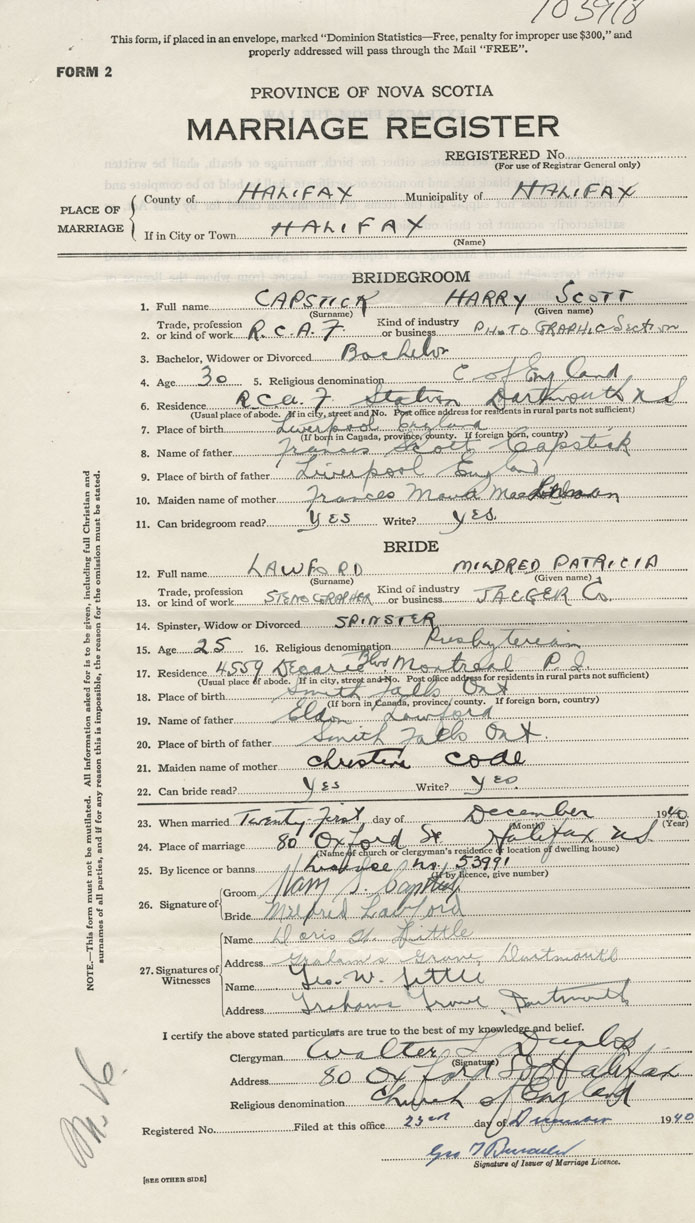 This form, if placed in an envelope, marked "Dominion Statistics—Free, penalty for improper use $300," and
properly addressed will pass through the Mail "FREE".
FORM 2
PROVINCE OF NOVA SCOTIA
MARRIAGE REGISTER
REGISTERED No.
(For use of Registrar General only)
PLACE OF MARRIAGE
County of HALIFAX Municipality of HALIFAX
If in City or Town HALIFAX
(Name)
BRIDEGROOM
1. Full name CAPSTICK HARRY SCOTT
(Surname) (Given name)
2. Trade, profession or kind of work R.C.A.F. Kind of industry or business PHOTOGRAPHIC Section
3. Bachelor, Widower or Divorced Bachelor
4. Age 30 5. Religious denomination C of England
6. Residence R.C.A.F Station Dartmouth N S
(Usual place of abode. If in city, street and No. Post office address for residents in rural parts not sufficient)
7. Place of birth Liverpool England
(If born in Canada, province, county. If foreign born, country)
8. Name of father Francis Scott Capstick
9. Place of birth of father Liverpool England
10. Maiden name of mother Frances Maud
11. Can bridegroom read? YES Write? YES
BRIDE
12. Full name LAWFORD MILDRED PATRICIA
(Surname) (Given name)
13. Trade, profession or kind of work STENOGRAPHER Kind of industry or business JAEGER Co.
14. Spinster, Widow or Divorced SPINSTER
15. Age 25 16. Religious denomination Presbyterian
17. Residence 4559 Decarie Blvd Montreal P.Q.
(Usual place of abode. If in city, street and No. Post office address for residents in rural parts not sufficient)
18. Place of birth Smith Falls Ont
(If born in Canada, province, county. If foreign born, country)
19. Name of father Eldon Lawford
20. Place of birth of father Smith Falls Ont.
21. Maiden name of mother Christena Code
22. Can bride read? Yes Write? Yes
23. When married Twenty First day of December 1940
(Month) (Year)
24. Place of marriage 80 Oxford St Halifax N.S.
(Name of church or clergyman's residence or location of dwelling house)
25. By licence or banns License no. 53991
(If by licence, give number)
26. Signature of
Groom Harry S. Capstick
Bride Mildred Lawford
27. Signatures of Witnesses
Name Doris Little
Address Graham's Grove, Dartmouth
Name Geo. W. Little
Address Grahams Grove, Dartmouth
I certify the above stated particulars are true to the best of my knowledge and belief.
Clergyman Walter Dunlop
(Signature)
Address 80 Oxford St Halifax
Religious denomination Church of England
Registered No. Filed at this office 23rd day of December 1940
Signature of Issuer of Marriage Licence.
[SEE OTHER SIDE]
NOTE.—This form must not be mutilated. All information asked for is to be given, including full Christian and
surnames of all parties, and if for any reason this is impossible, the reason for the omission must be stated.